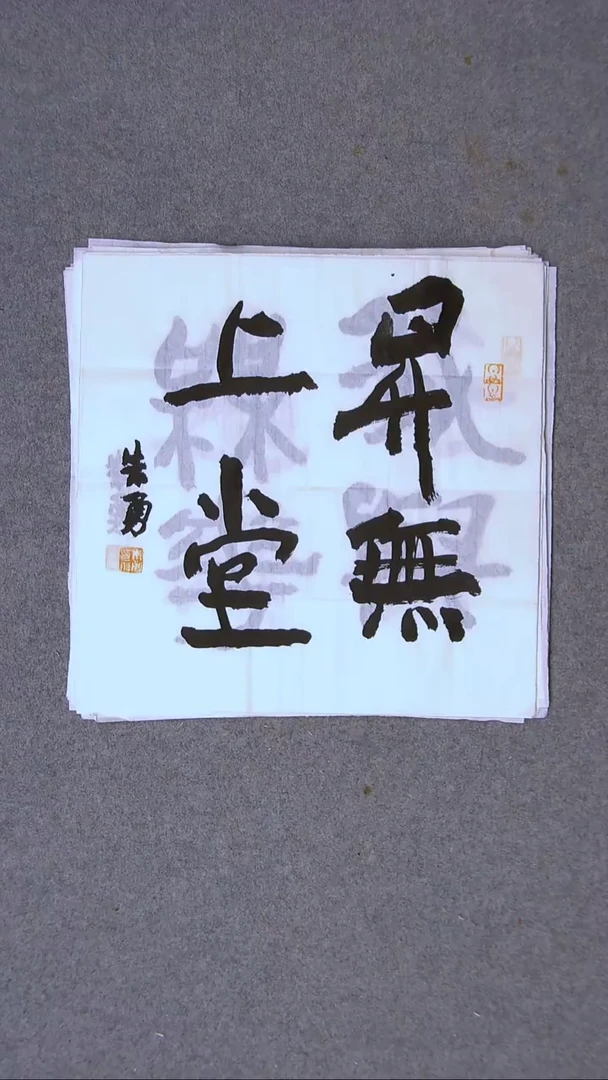 昇無
上堂
朱勇